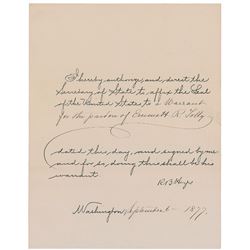 I hereby authorize and direct the
Secretary of State to affix the Seal
of the United States to a Warrant
for the pardon of Emmett R. Tolly
dated this day, and signed by me
and for so doing this shall be his
warrant.
R B Hayes
Washington, September 6 1877.